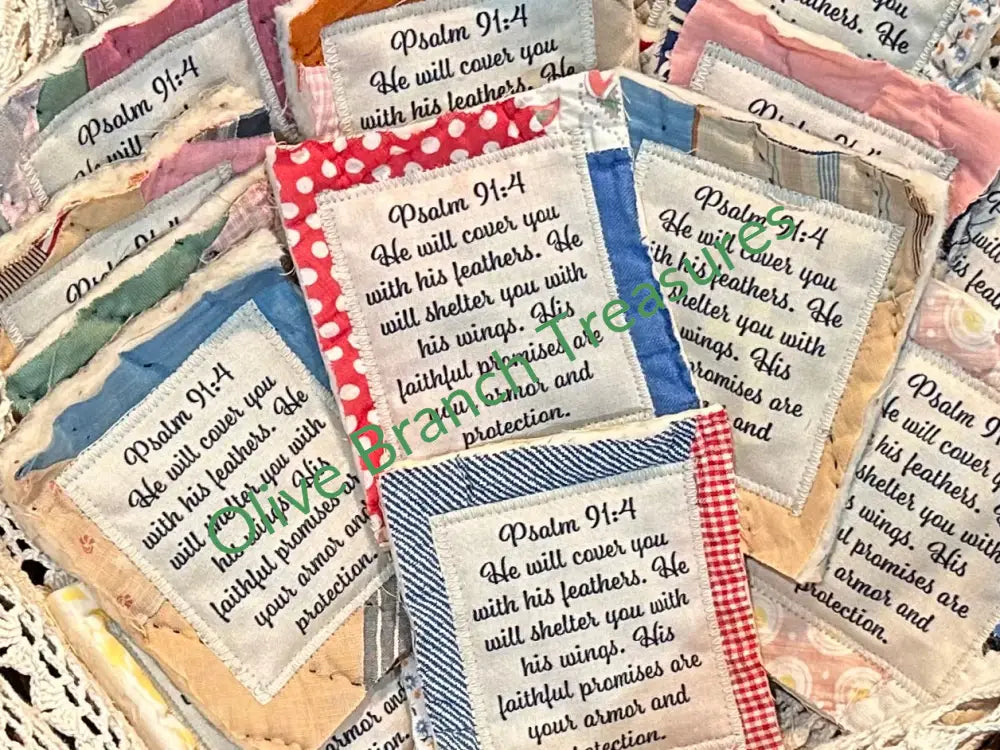 Psalm 91:4
He will
Psalm 91:4
He will cover you
with his feathers. He
Psalm 91:4
his feathers. He
Psalm 91:4
He will cover you
with his feathers. He
will shelter you with
his wings. His
faithful promises are
your armor and
protection.
Psalm 91:4
He will cover you
with his feathers. He
shelter you with
wings. His
promises are
and
Psalm 91:4
He will cover you
with his feathers. He
will shelter you with
his wings. His
faithful promises are
your armor and
protection.
Psalm 91:4
He will cover you
with his feathers. He
will shelter you with
his wings. His
faithful promises are
your armor and
protection.
Psalm 91:4
He will cover you
with his feathers.
shelter you with
wings. His
promises are
armor and
protection.
armor and
Olive Branch Treasures